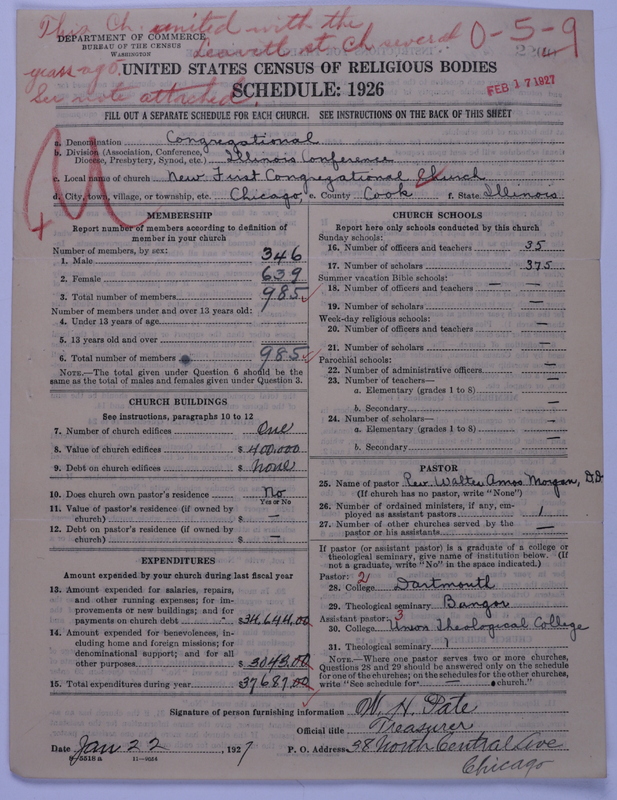 This Ch. united with the
Leavitt st ch several
years ago.
See note attached.
0-5-9
DEPARTMENT OF COMMERCE
BUREAU OF THE CENSUS
WASHINGTON
UNITED STATES CENSUS OF RELIGIOUS BODIES
SCHEDULE: 1926
FEB 17 1927
FILL OUT A SEPARATE SCHEDULE FOR EACH CHURCH. SEE INSTRUCTIONS ON THE BACK OF THIS SHEET
a. Denomination Congregational
b. Division (Association, Conference, Diocese, Presbytery, Synod, etc.) Illinois Conference
c. Local name of church New First Congregational Church
d. City, town, village, or township, etc. Chicago, e. County Cook f. State Illinois
MEMBERSHIP
Report number of members according to definition of
member in your church
Number of members, by sex:
1. Male 346
2. Female 639
3. Total number of members 985
Number of members under and over 13 years old:
4. Under 13 years of age
5. 13 years old and over
6. Total number of members 985
NOTE.—The total given under Question 6 should be the
same as the total of males and females given under Question 3.
CHURCH BUILDINGS
See instructions, paragraphs 10 to 12
7. Number of church edifices One
8. Value of church edifices $400,000
9. Debt on church edifices $ None
10. Does church own pastor's residence No
Yes or No
11. Value of pastor's residence (if owned by
church) $ —
12. Debt on pastor's residence (if owned by
church) $ —
EXPENDITURES
Amount expended by your church during last fiscal year
13. Amount expended for salaries, repairs,
and other running expenses; for im-
provements or new buildings; and for
payments on church debt $34,644.00
14. Amount expended for benevolences, in-
cluding home and foreign missions; for
denominational support; and for all
other purposes $ 3043.00
15. Total expenditures during year $37687.00
CHURCH SCHOOLS
Report here only schools conducted by this church
Sunday schools:
16. Number of officers and teachers 35
17. Number of scholars 375
Summer vacation Bible schools:
18. Number of officers and teachers — —
19. Number of scholars —
Week-day religious schools:
20. Number of officers and teachers —
21. Number of scholars —
Parochial schools:
22. Number of administrative officers —
23. Number of teachers—
a. Elementary (grades 1 to 8) —
b. Secondary —
24. Number of scholars—
a. Elementary (grades 1 to 8) —
b. Secondary —
PASTOR
25. Name of pastor Rev. Walter Amos Morgan, D.D
(If church has no pastor, write "None")
26. Number of ordained ministers, if any, em-
ployed as assistant pastors 1
27. Number of other churches served by the
pastor or his assistants —
If pastor (or assistant pastor) is a graduate of a college or
theological seminary, give name of institution below. (If
not a graduate, write "No" in the space indicated.)
Pastor: 2
28. College Dartmouth
29. Theological seminary Bangor
Assistant pastor: 3
30. College Union Theological College
31. Theological seminary
NOTE.—Where one pastor serves two or more churches,
Questions 28 and 29 should be answered only on the schedule
for one of the churches; on the schedules for the other churches,
write "See schedule for — church."
Signature of person furnishing information W. H. Pate
Official title Treasurer
Date Jan 22, 1927 P. O. Address 38 North Central Ave
Chicago
8-5518 a 11-9654